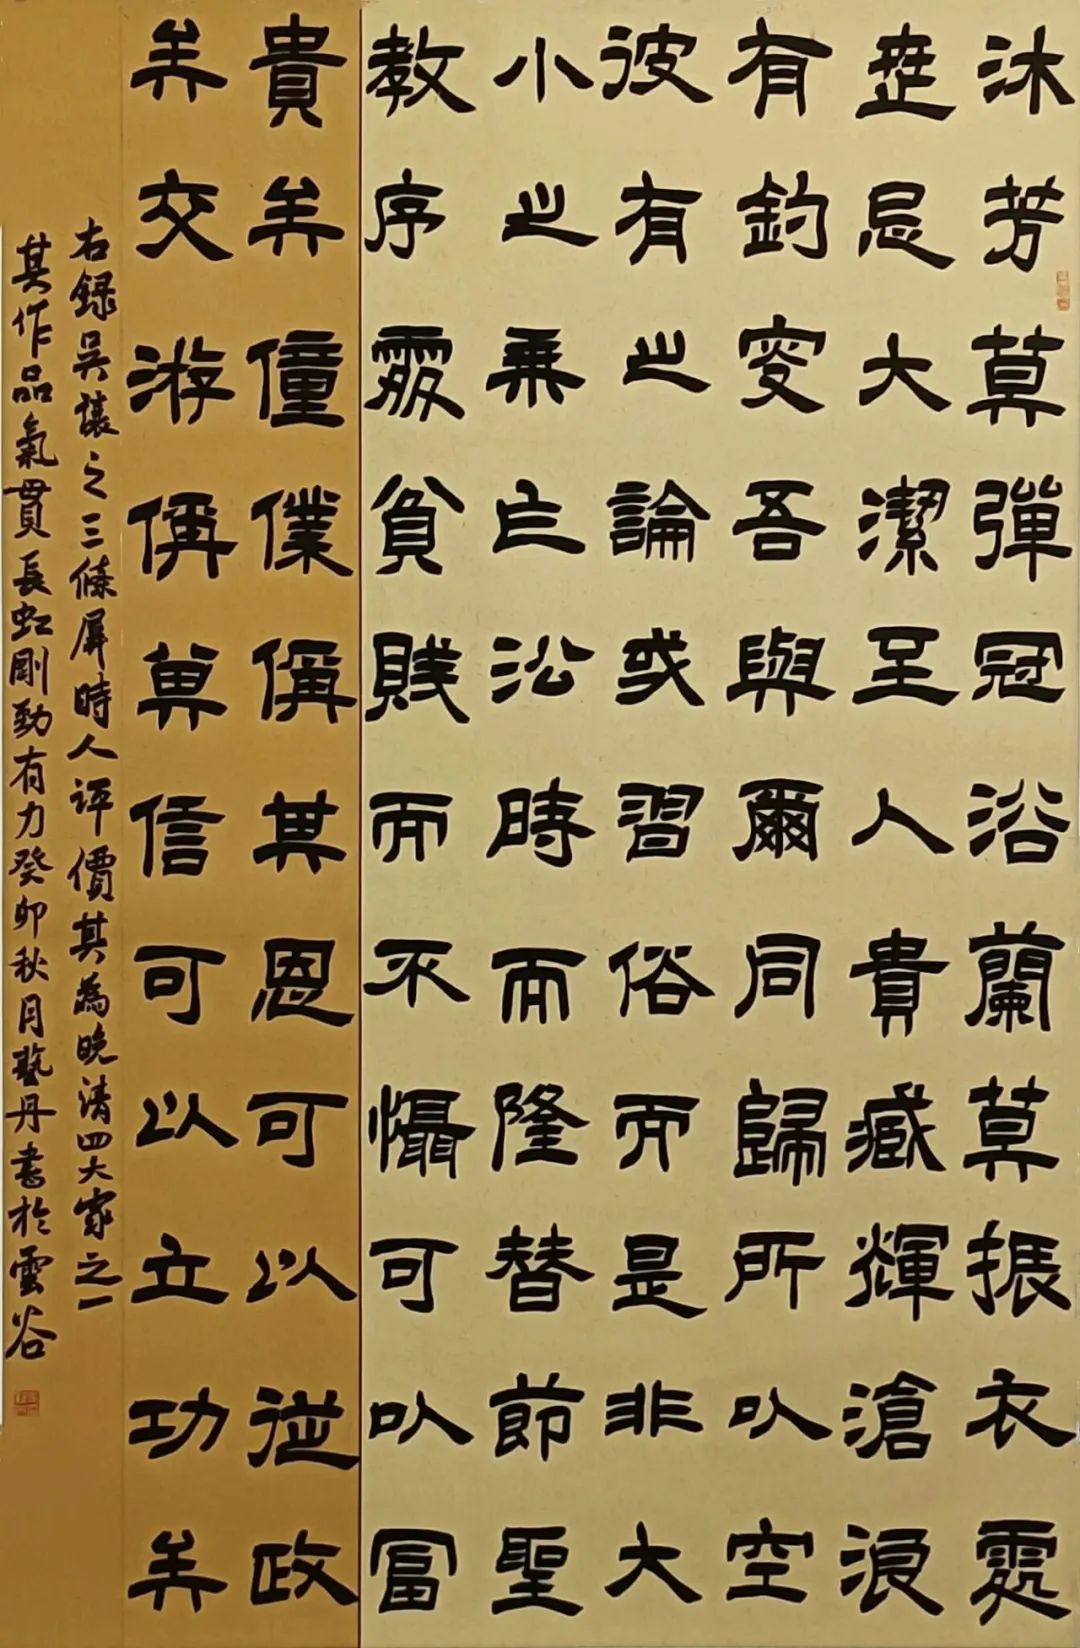 沐芳莫彈冠浴蘭莫振衣處
世忌大潔至人貴臧輝滄浪
有釣叟吾與爾同歸所以空
彼有之論或習俗而是非大
小之乘亡沿時而隆替節聖
教序處貧賤而不懾可以富
貴矣僮僕稱其恩可以從政
矣交游稱其信可以立功矣
右錄吳讓之三條屏時人評價其為晚清四大家之一
其作品氣貫長虹剛勁有力癸卯秋月藝丹書於雲谷